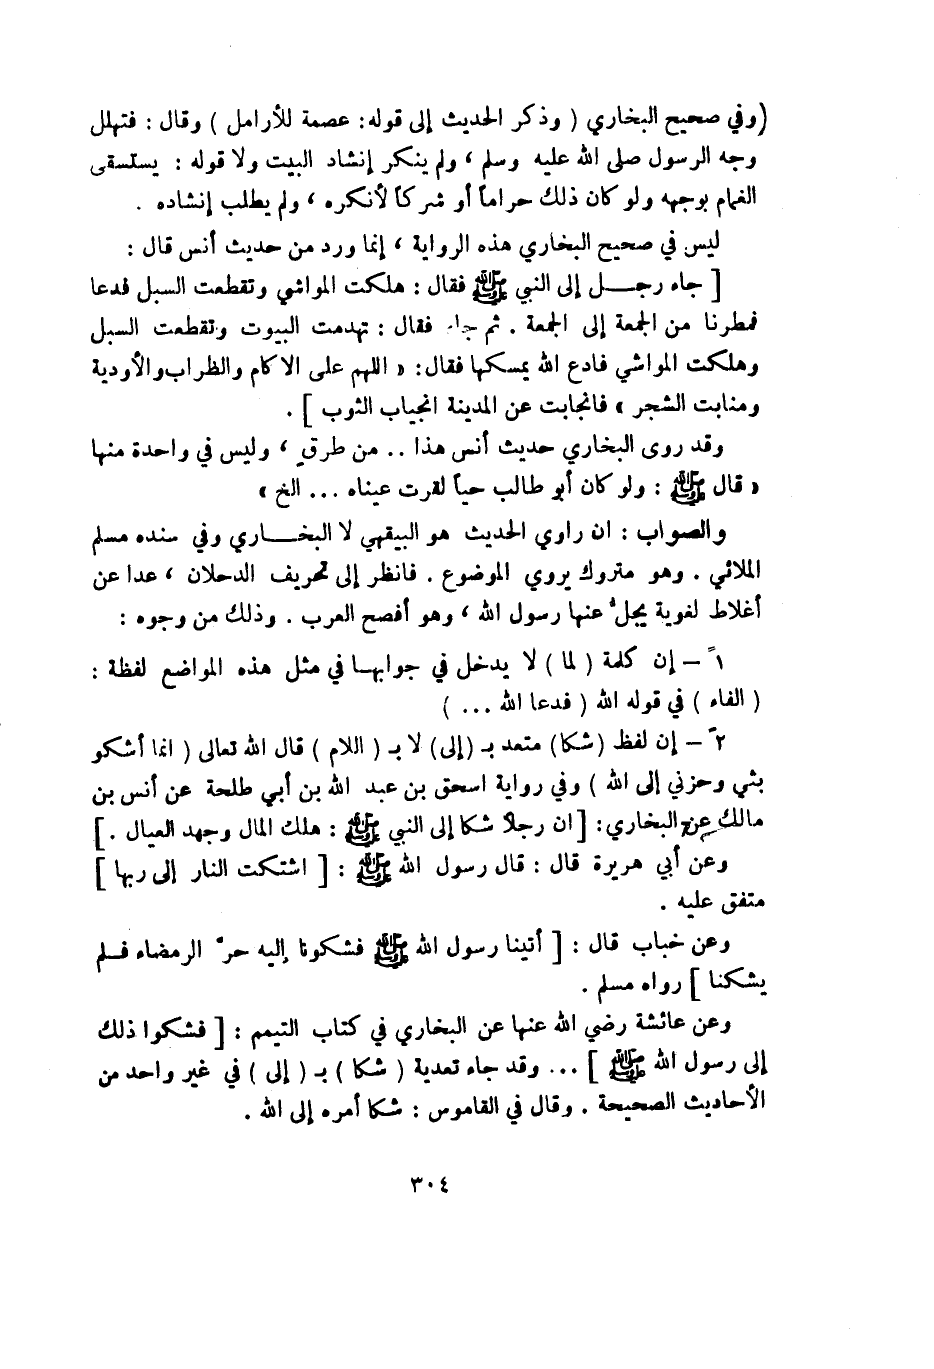 (وفي صحيح البخاري ( وذكر الحديث إلى قوله: عصمة للأرامل ) وقال : فتهلل
وجه الرسول صلى الله عليه وسلم ، ولم ينكر إنشاد البيت ولا قوله : يستسقى
الغمام بوجهه ولو كان ذلك حراماً أو شركاً لأنكره ، ولم يطلب إنشاده .
ليس في صحيح البخاري هذه الرواية ، إنما ورد من حديث أنس قال :
[ جاء رجل إلى النبي ﷺ فقال : هلكت المواشي وتقطعت السبل فدعا
فمطرنا من الجمعة إلى الجمعة . ثم جاء فقال : تهدمت البيوت وتقطعت السبل
وهلكت المواشي فادع الله يمسكها فقال: « اللهم على الاكام والظراب والأودية
ومنابت الشجر » فانجابت عن المدينة انجياب الثوب ] .
وقد روى البخاري حديث أنس هذا .. من طرقٍ ، وليس في واحدة منها
« قال ﷺ : ولو كان أبو طالب حياً لقرت عيناه ... الخ »
والصواب : ان راوي الحديث هو البيقهي لا البخاري وفي سنده مسلم
الملائي . وهو متروك يروي الموضوع . فانظر إلى تحريف الدحلان ، عدا عن
أغلاط لغوية يجلُّ عنها رسول الله ، وهو أفصح العرب . وذلك من وجوه :
١ً – إن كلمة ( لما ) لا يدخل في جوابها في مثل هذه المواضع لفظة :
( الفاء ) في قوله الله ( فدعا الله ... )
٢ً – إن لفظ (شكا) متعد بـ (إلى) لا بـ ( اللام ) قال الله تعالى ( انما أشكو
بثي وحزني إلى الله ) وفي رواية اسحق بن عبد الله بن أبي طلحة عن أنس بن
مالك عن البخاري: [ان رجلا شكا إلى النبي ﷺ : هلك المال وجهد العيال .]
وعن أبي هريرة قال : قال رسول الله ﷺ : [ اشتكت النار إلى ربها ]
متفق عليه .
وعن خباب قال : [ أتينا رسول الله ﷺ فشكونا إليه حرَّ الرمضاء فلم
يشكنا ] رواه مسلم .
وعن عائشة رضي الله عنها عن البخاري في كتاب التيمم : [ فشكوا ذلك
إلى رسول الله ﷺ ] ... وقد جاء تعدية ( شكا ) بـ ( إلى ) في غير واحد من
الأحاديث الصحيحة . وقال في القاموس : شكا أمره إلى الله .
٣٠٤